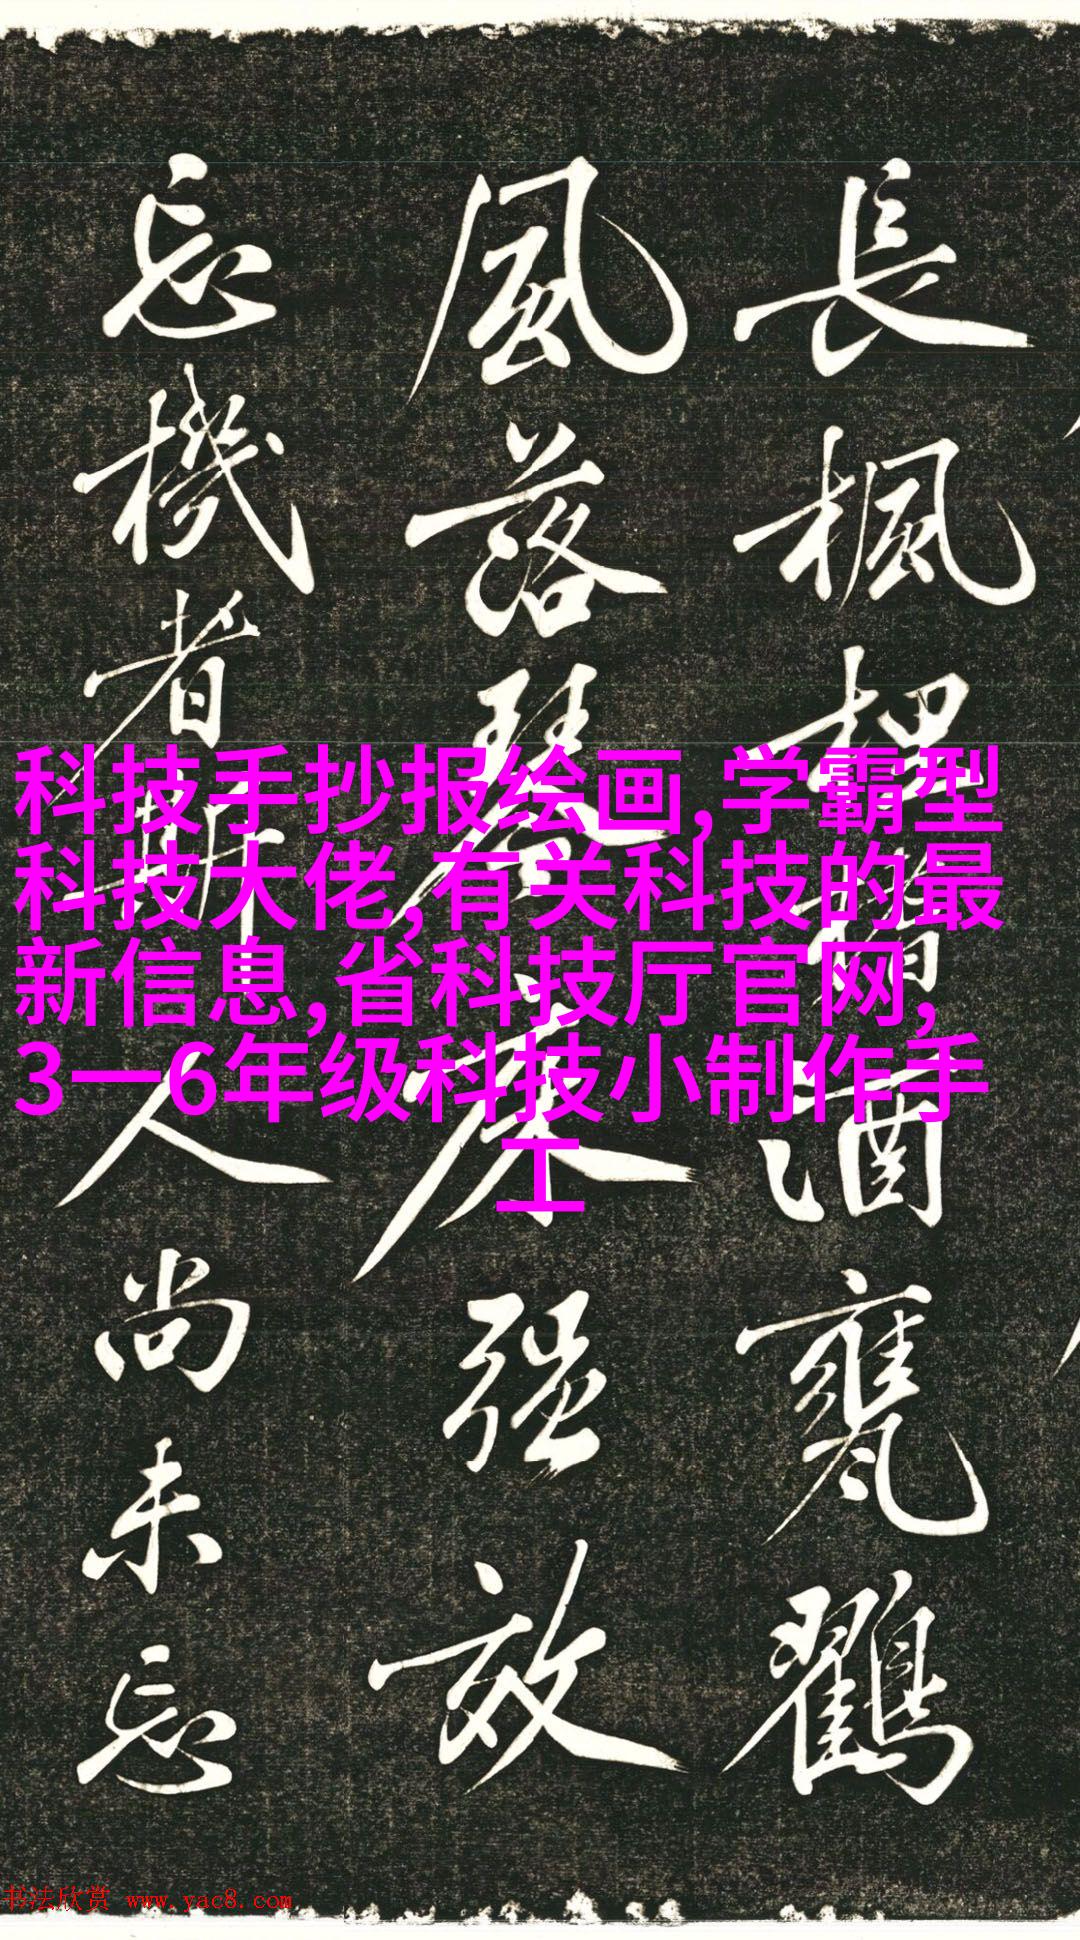 長楓酒甕
風落琴床强效
忘機者斯人尚未忘
科技手抄报绘画,学霸型
科技大佬,有关科技的最
新信息,省科技厅官网,
3一6年级科技小制作手
工
书法欣赏 www.yac8.com